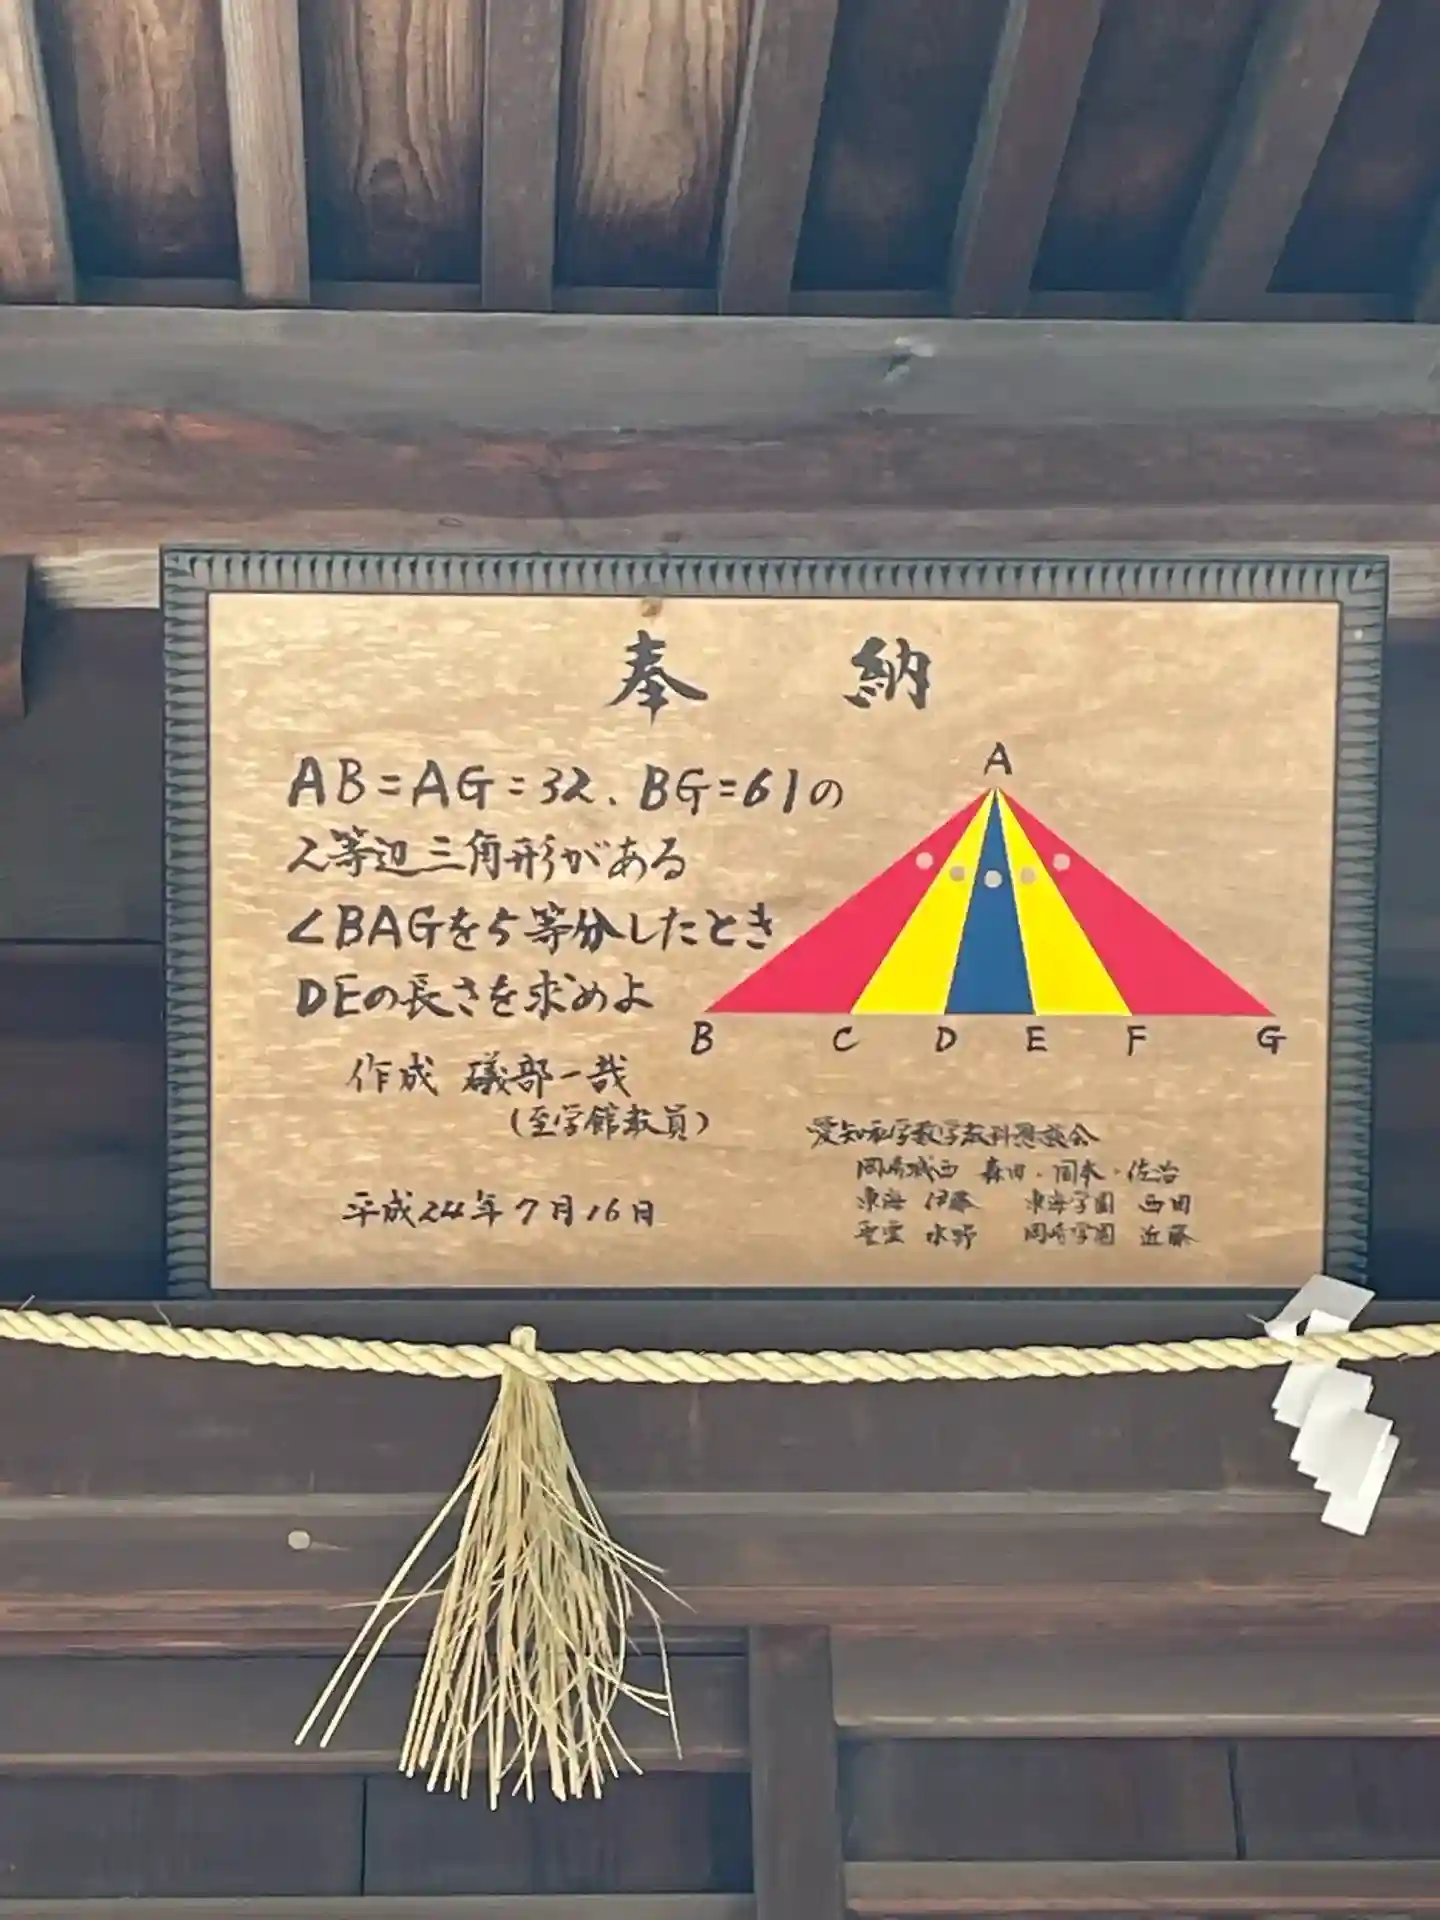 奉納
AB=AG=32、BG=61の
2等辺三角形がある
∠BAGを5等分したとき
DEの長さを求めよ
A
B C D E F G
作成 礒部一哉
(至学館教員)
平成24年7月16日
愛知私学数学教科懇談会
岡崎城西 森田・岡本・佐治
東海 伊藤 東海学園 西田
聖霊 水野 岡崎学園 近藤